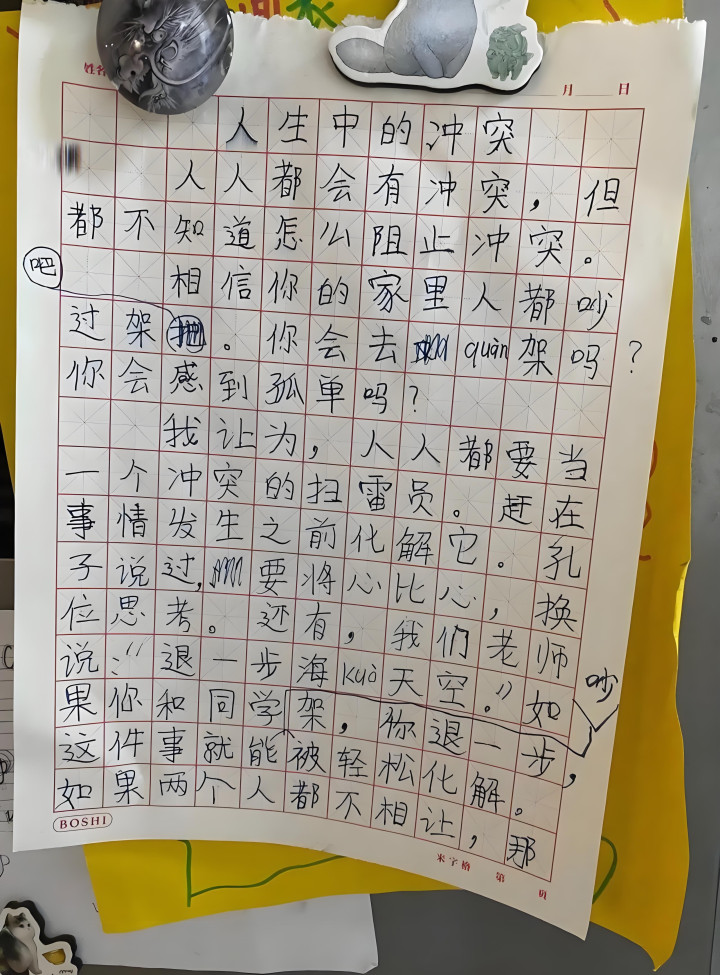 姓名
月 日
人生中的冲突
人人都会有冲突，但
都不知道怎么阻止冲突。
相信你的家里人都吵
过架吧。你会去quàn架吗？
你会感到孤单吗？
我让为，人人都要当
一个冲突的扫雷员。赶在
事情发生之前化解它。孔
子说过，要将心比心，换
位思考。还有，我们老师
说："退一步海kuò天空。"如
果你和同学吵架，你退一步，
这件事就能被轻松化解。
如果两个人都不相让，那
BOSHI
米字格 第 页